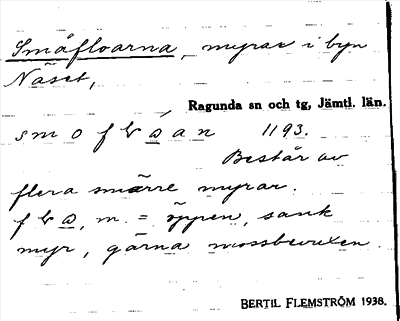 Småfloarna, myrar i byn
Näset,
Ragunda sn och tg, Jämtl. län.
smoflɷ́an 1193.
Består av
flera smärre myrar.
flɷ, m. = öppen, sank
myr, gärna mossbevuxen.
BERTIL FLEMSTRÖM 1938.